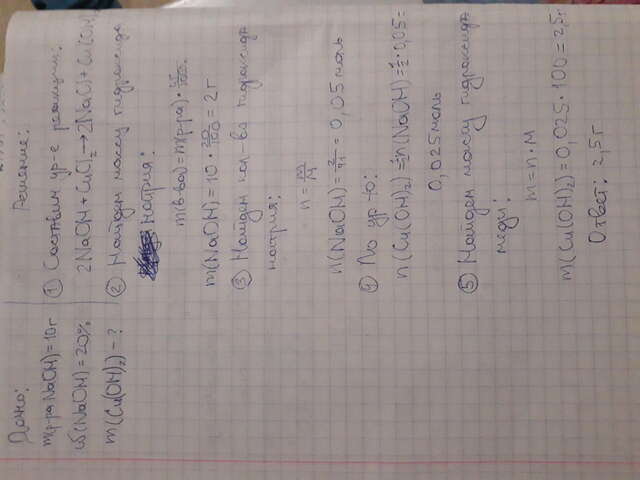 Дано:
m(р-ра NaOH) = 10 г
ω(NaOH) = 20%
m(Cu(OH)₂) - ?
Решение:
① Составим ур-е реакции:
2NaOH + CuCl₂ → 2NaCl + Cu(OH)₂
② Найдем массу гидроксида
натрия:
m(в-ва) = m(р-ра) · ω/100%
m(NaOH) = 10 · 20/100 = 2 г
③ Найдем кол-во гидроксида
натрия:
n = m/M
n(NaOH) = 2/41 = 0,05 моль
④ По ур-ю:
n(Cu(OH)₂) = ½n(NaOH) = ½ · 0,05 =
0,025 моль
⑤ Найдем массу гидроксида
меди:
m = n · M
m(Cu(OH)₂) = 0,025 · 100 = 2,5 г
Ответ: 2,5 г